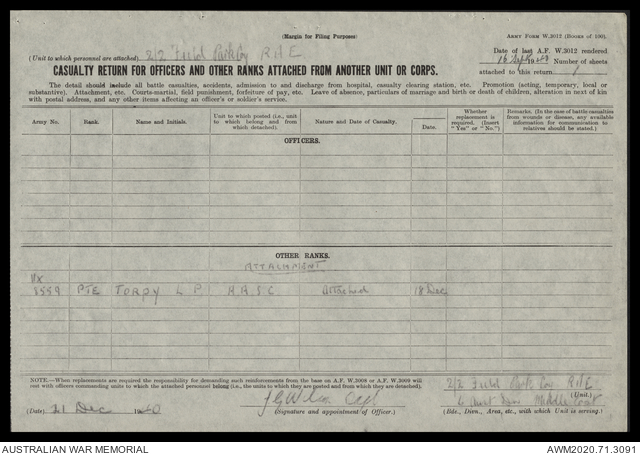 (Margin for Filing Purposes)
ARMY FORM W.3012 (Books of 100).
(Unit to which personnel are attached) 2/2 Field Park Coy R.A.E
Date of last A.F. W.3012 rendered
16 Sept 1940 Number of sheets
attached to this return
CASUALTY RETURN FOR OFFICERS AND OTHER RANKS ATTACHED FROM ANOTHER UNIT OR CORPS.
The detail should include all battle casualties, accidents, admission to and discharge from hospital, casualty clearing station, etc. Promotion (acting, temporary, local or
substantive), Attachment, etc. Courts-martial, field punishment, forfeiture of pay, etc. Leave of absence, particulars of marriage and birth or death of children, alteration in next of kin
with postal address, and any other items affecting an officer's or soldier's service.
Army No. Rank. Name and Initials. Unit to which posted (i.e., unit to which belong and from which detached). Nature and Date of Casualty. Date. Whether replacement is required. (Insert "Yes" or "No.") Remarks. (In the case of battle casualties from wounds or disease, any available information for communication to relatives should be stated.)
OFFICERS.
OTHER RANKS.
ATTACHMENT
VX
8559 PTE TORPY L P A.A.S.C Attached 18 Dec
NOTE.—When replacements are required the responsibility for demanding such reinforcements from the base on A.F. W.3008 or A.F. W.3009 will
rest with officers commanding units to which the attached personnel belong (i.e., the units to which they are posted and from which they are detached).
2/2 Field Park Coy R.A.E
(Unit.)
6 Aust Div Middle East
(Date) 21 Dec 1940
(Signature and appointment of Officer.)
(Bde., Divn., Area, etc., with which Unit is serving.)
AUSTRALIAN WAR MEMORIAL
AWM2020.71.3091